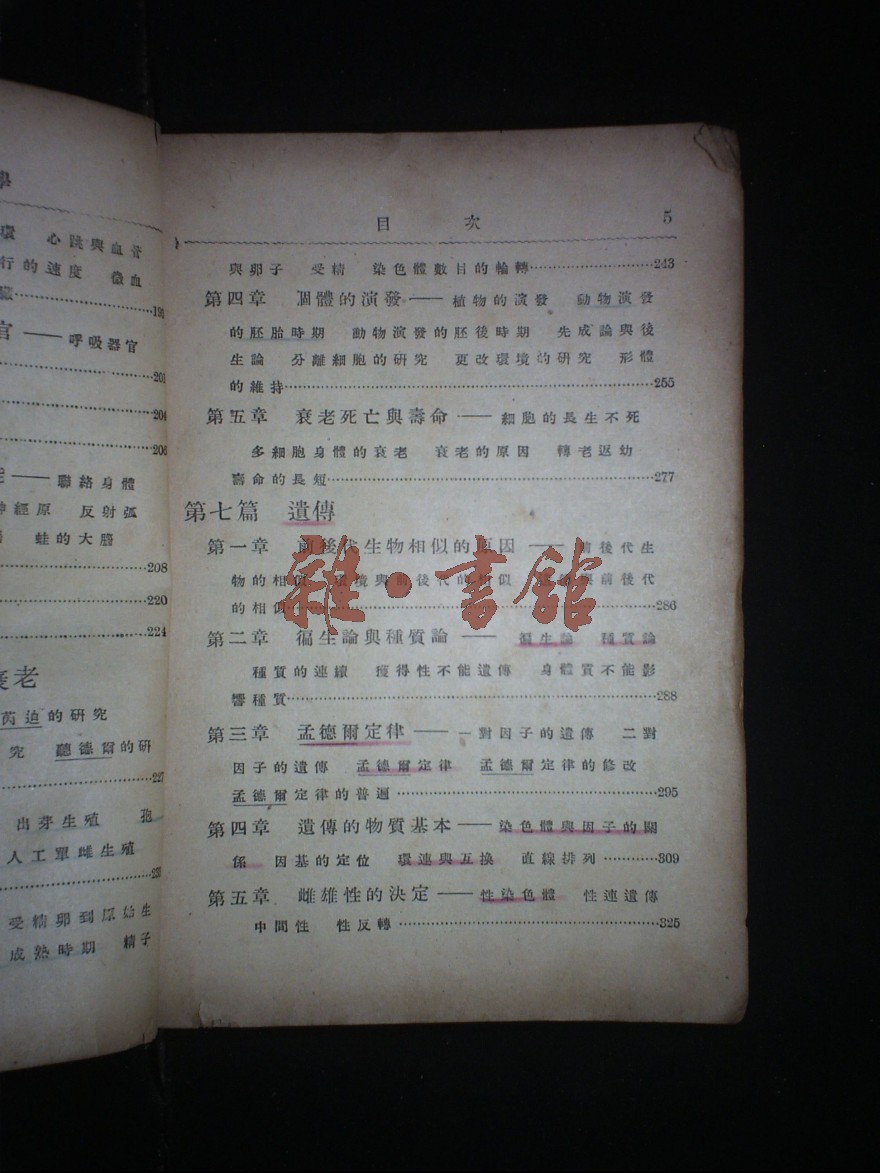 學
環 心跳與血管
行的速度 微血
臟……198
官——呼吸器官
……201
……204
……206
——聯絡身體
神經原 反射弧
蛙的大腦
……208
……220
……224
衰老
芮迫的研究
究 聽德爾的研
……227
出芽生殖 孢
人工單雌生殖
受精卵到原始生
成熟時期 精子
目次 5
與卵子 受精 染色體數目的輪轉……243
第四章 個體的演發——植物的演發 動物演發
的胚胎時期 動物演發的胚後時期 先成論與後
生論 分離細胞的研究 更改環境的研究 形體
的維持……255
第五章 衰老死亡與壽命——細胞的長生不死
多細胞身體的衰老 衰老的原因 轉老返幼
壽命的長短……277
第七篇 遺傳
第一章 前後代生物相似的原因——前後代生
物的相似 環境與前後代的相似 遺傳與前後代
的相似……286
雜·書館
第二章 徧生論與種質論——徧生論 種質論
種質的連續 獲得性不能遺傳 身體質不能影
響種質……288
第三章 孟德爾定律——一對因子的遺傳 二對
因子的遺傳 孟德爾定律 孟德爾定律的修改
孟德爾定律的普遍……295
第四章 遺傳的物質基本——染色體與因子的關
係 因基的定位 環連與互換 直線排列……309
第五章 雌雄性的決定——性染色體 性連遺傳
中間性 性反轉……325